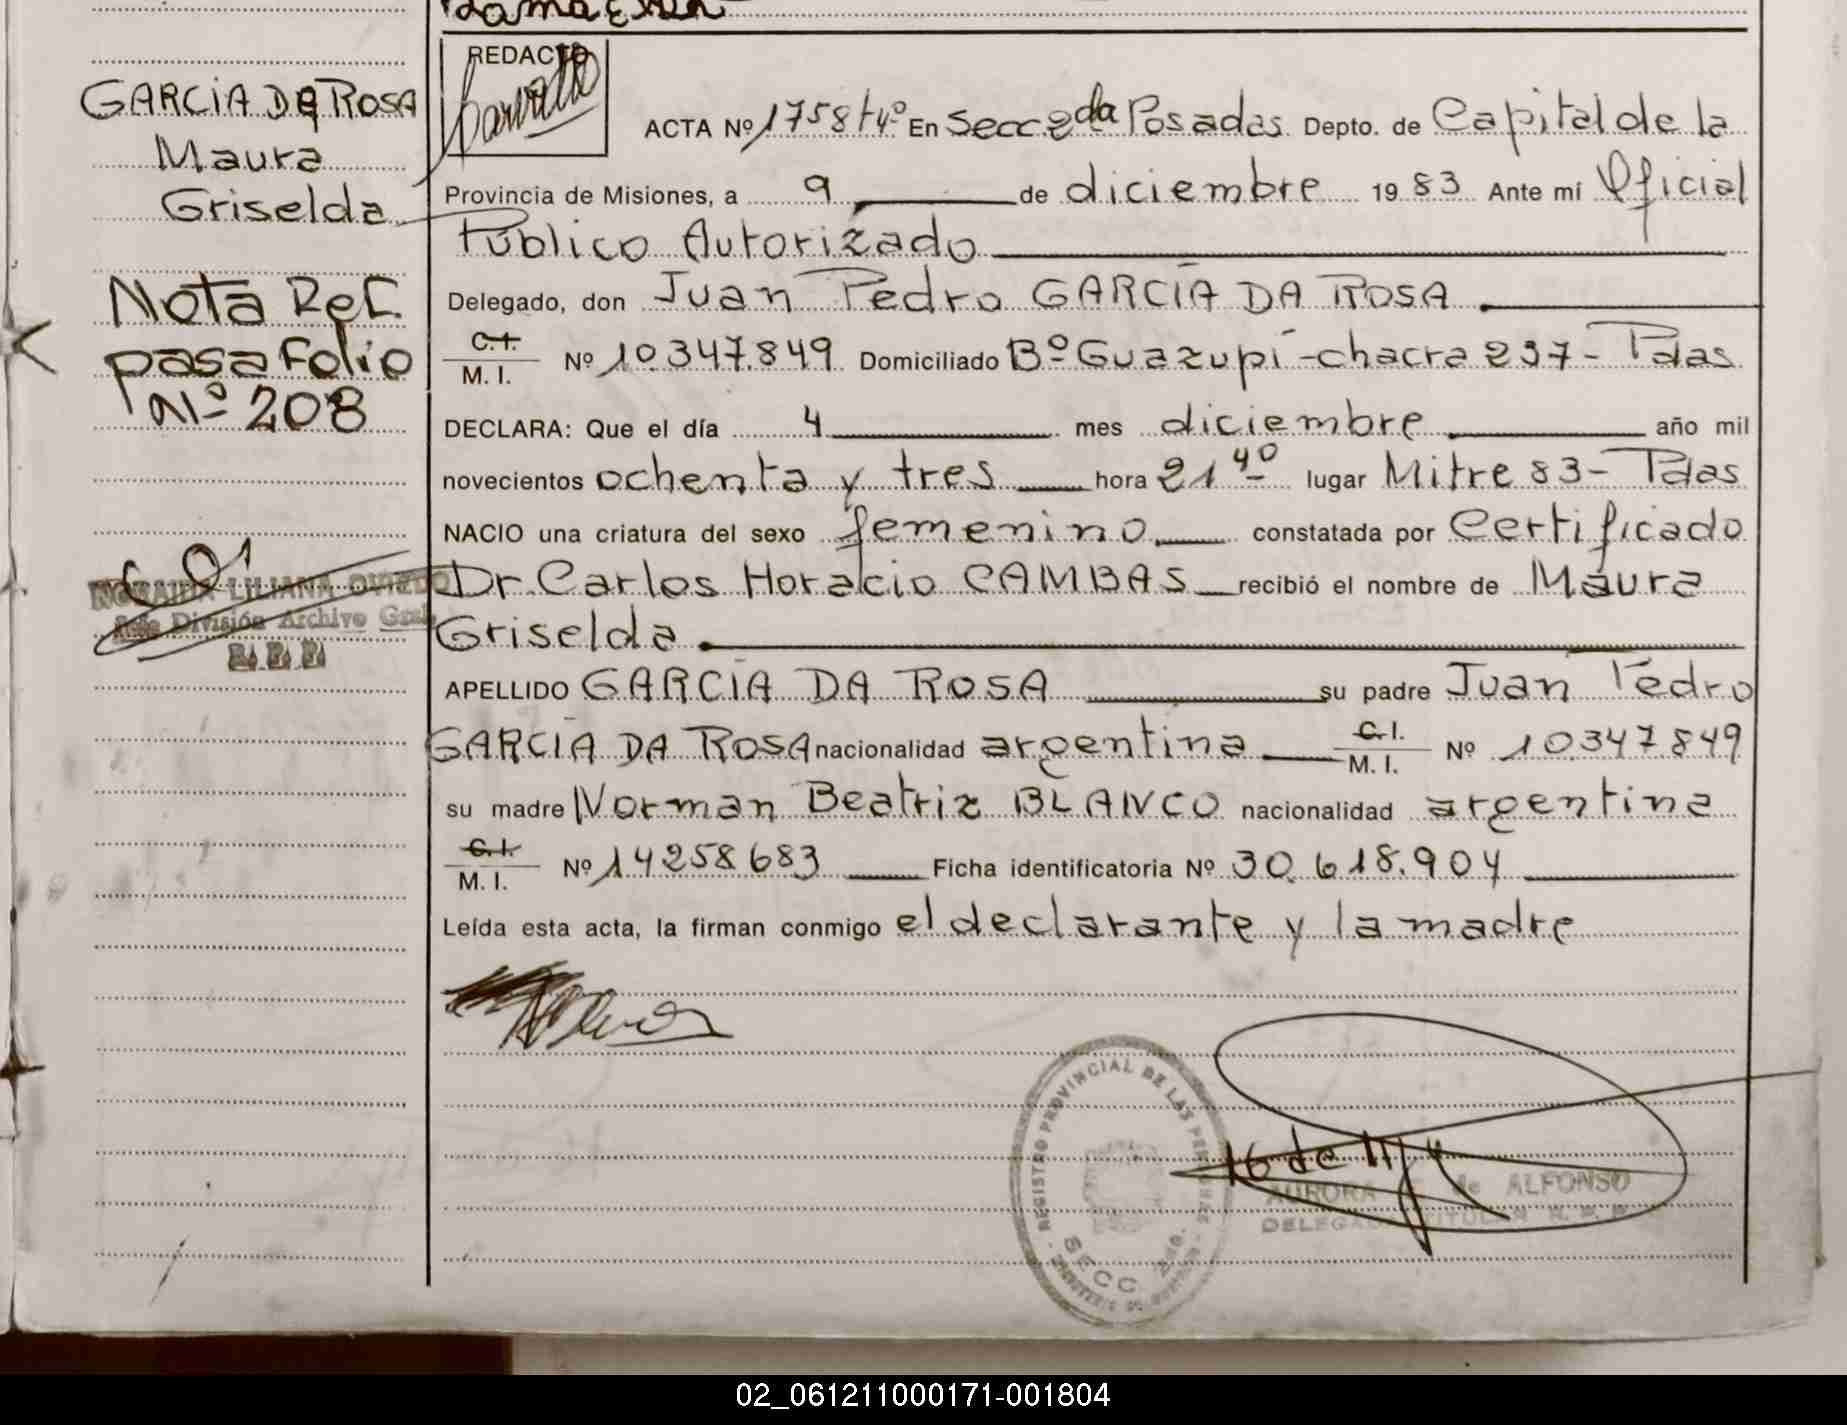 REDACTO
GARCIA DA ROSA
Maura
Griselda
Nota Ref.
pasa Folio
Nº 208
NORAIDA LILIANA OVIEDO
Jefe División Archivo Gral.
R. P. P.
ACTA Nº 1758 tº 4º En Secc 2da Posadas Depto. de Capital de la
Provincia de Misiones, a 9 de diciembre 1983 Ante mí Oficial
Público Autorizado
Delegado, don Juan Pedro GARCÍA DA ROSA
C.I. M. I. Nº 10.347.849 Domiciliado Bº Guazupí - chacra 237 - Pdas
DECLARA: Que el día 4 mes diciembre año mil
novecientos ochenta y tres hora 21 40 lugar Mitre 83 - Pdas
NACIO una criatura del sexo femenino constatada por Certificado
Dr. Carlos Horacio CAMBAS recibió el nombre de Maura
Griselda
APELLIDO GARCÍA DA ROSA su padre Juan Pedro
GARCÍA DA ROSA nacionalidad argentina C.I. M. I. Nº 10.347.849
su madre Norman Beatriz BLANCO nacionalidad argentina
C.I. M. I. Nº 14258683 Ficha identificatoria Nº 30.618.904
Leída esta acta, la firman conmigo el declarante y la madre
REGISTRO PROVINCIAL DE LAS PERSONAS
SECC. 2da.
16 de
AURORA de ALFONSO
DELEGADA TITULAR R. P. P.
02_061211000171-001804